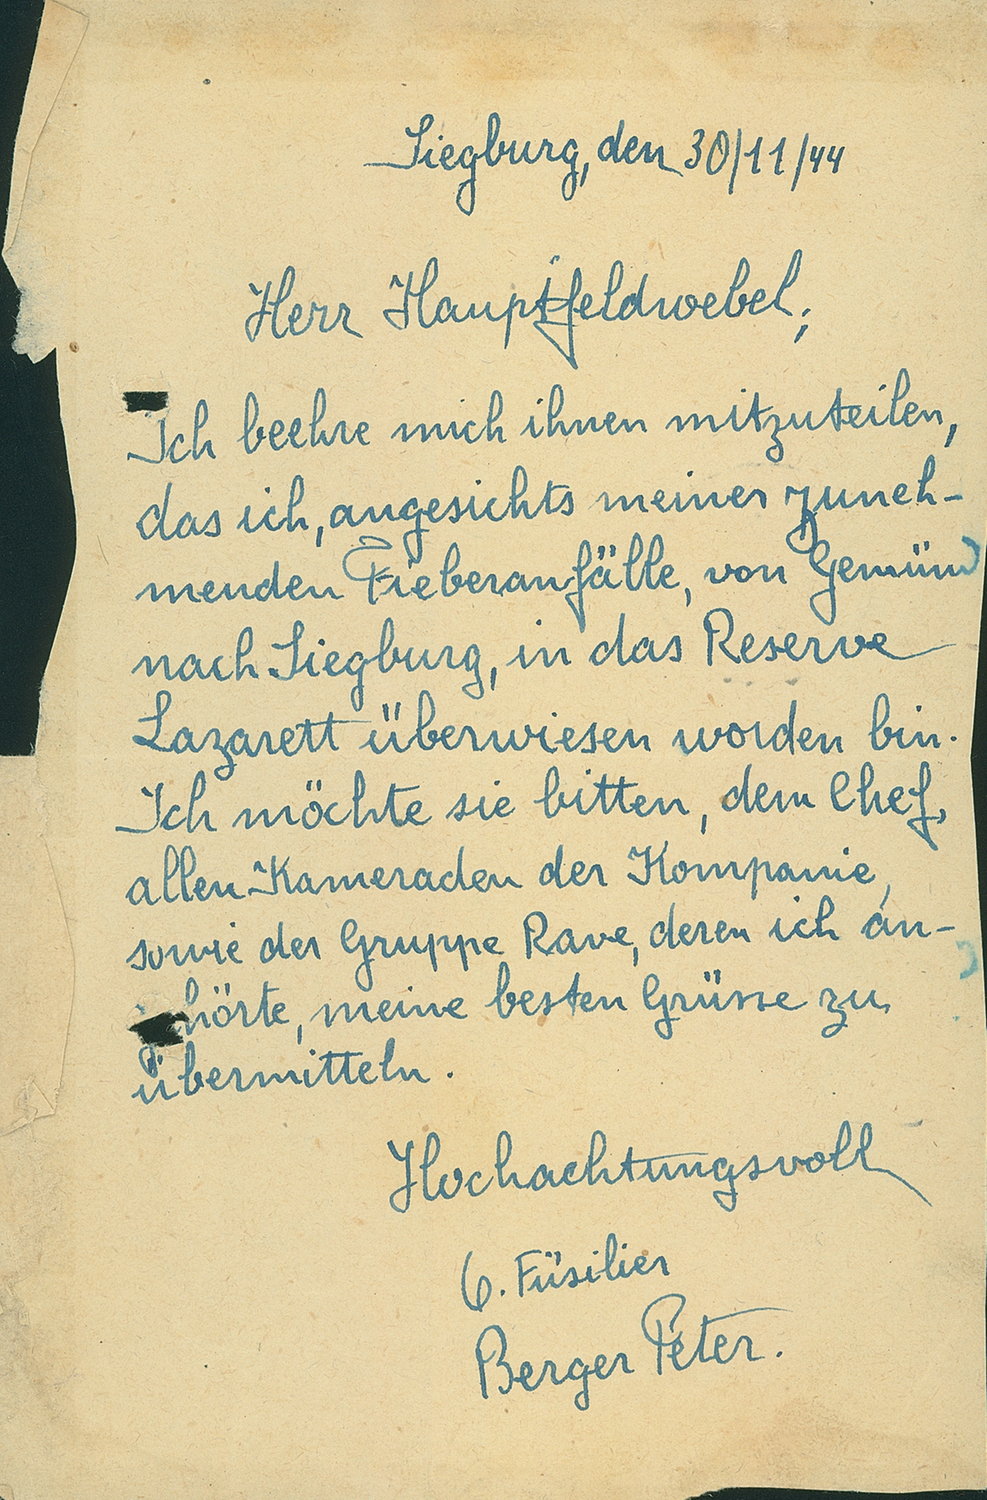 Siegburg, den 30/11/44
Herr Hauptfeldwebel;
Ich beehre mich ihnen mitzuteilen,
das ich, angesichts meiner zuneh-
menden Fieberanfälle, von Gemünd
nach Siegburg, in das Reserve
Lazarett überwiesen worden bin.
Ich möchte sie bitten, dem Chef,
allen Kameraden der Kompanie,
sowie der Gruppe Rave, deren ich an-
gehörte, meine besten Grüsse zu
übermitteln.
Hochachtungsvoll
G. Füsilier
Berger Peter.